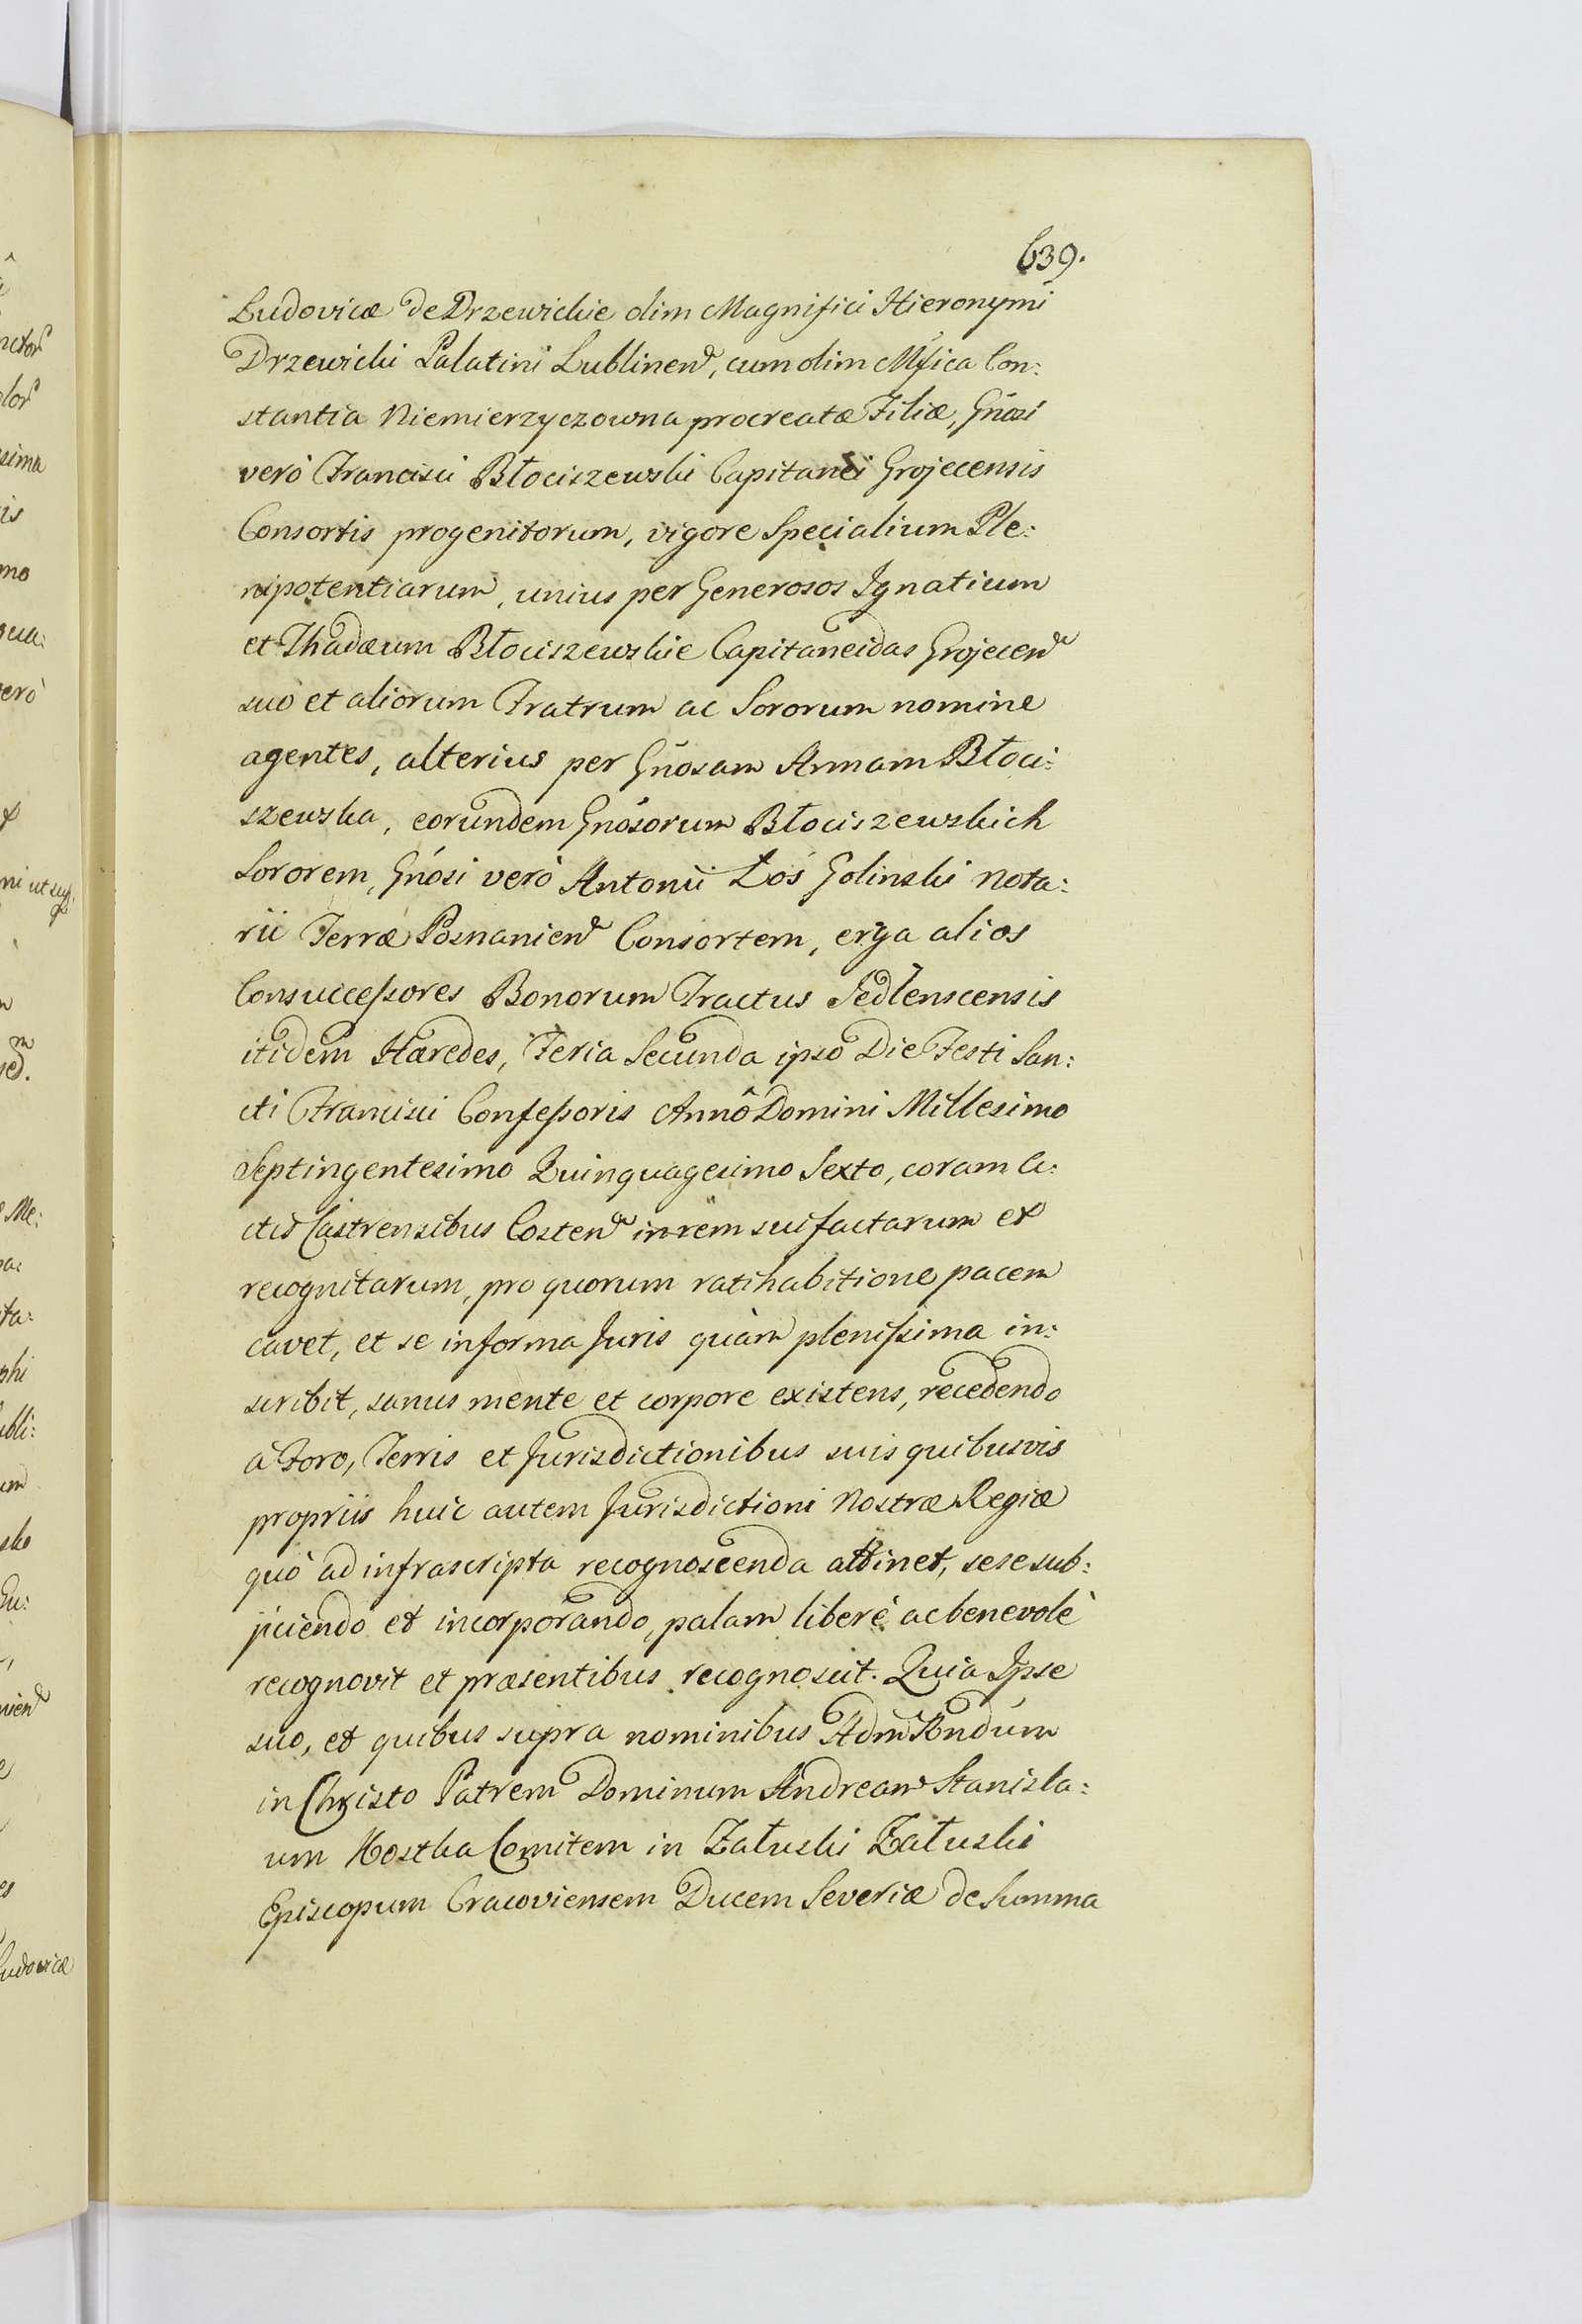 639.
Ludovicæ de Drzewickie olim Magnifici Hieronymi
Drzewicki Palatini Lublinens, cum olim Mfica Con:
stantia Niemierzyczowna procreatæ Filiæ, Gnosi
verò Francisci Błociszewski Capitanei Grojecensis
Consortis progenitorum, vigore Specialium Ple:
nipotentiarum, unius per Generosos Ignatium
et Thadæum Błociszewskie Capitaneidas Grojecens
suo et aliorum Fratrum ac Sororum nomine
agentes, alterius per Gnosam Annam Błoci:
szewska, eorundem Gnosorum Błociszewskich
Sororem, Gnosi verò Antonii Łoś Golinski Nota:
rii Terræ Posnaniens Consortem, erga alios
Consuccessores Bonorum Tractus Jedlenscensis
itidem Hæredes, Feria Secunda ipso Die Festi San:
cti Francisci Confessoris Annô Domini Millesimo
Septingentesimo Quinquagesimo Sexto, coram A:
ctis Castrensibus Costens in rem sui factarum et
recognitarum, pro quorum ratihabitione pacem
cavet, et se in forma Juris quàm plenissima in:
scribit, sanus mente et corpore existens, recedendo
à Foro, Terris et Jurisdictionibus suis quibusvis
propriis huic autem Jurisdictioni Nostræ Regiæ
quò ad infrascripta recognoscenda attinet, sese sub:
jiciendo et incorporando, palam liberè ac benevolè
recognovit et præsentibus recognoscit. Quia Ipse
suo, et quibus supra nominibus Adm Rndum
in Christo Patrem Dominum Andream Stanisla:
um Kostka Comitem in Załuski Załuski
Episcopum Cracoviensem Ducem Severiæ de Summa